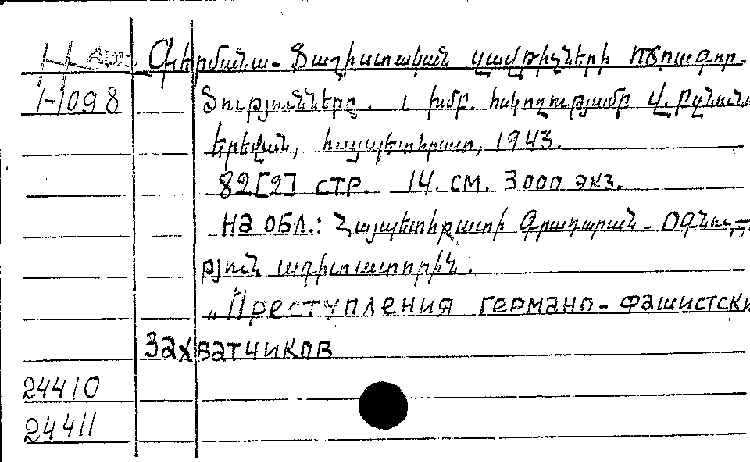 Н Գերմանա-Ֆաշիստական զավթիչների ոճրագոր-
1-1098 ծությունները. խմբ. հսկողությամբ Վ.
Երեվան, հայպետհրատ, 1943.
82[2] стр. 14 см. 3000 экз.
На обл.: Հայպետհրատի Գրադարան-Օգնու-
թյուն ագիտատորին.
„Преступления германо-фашистски
захватчиков
24410
24411